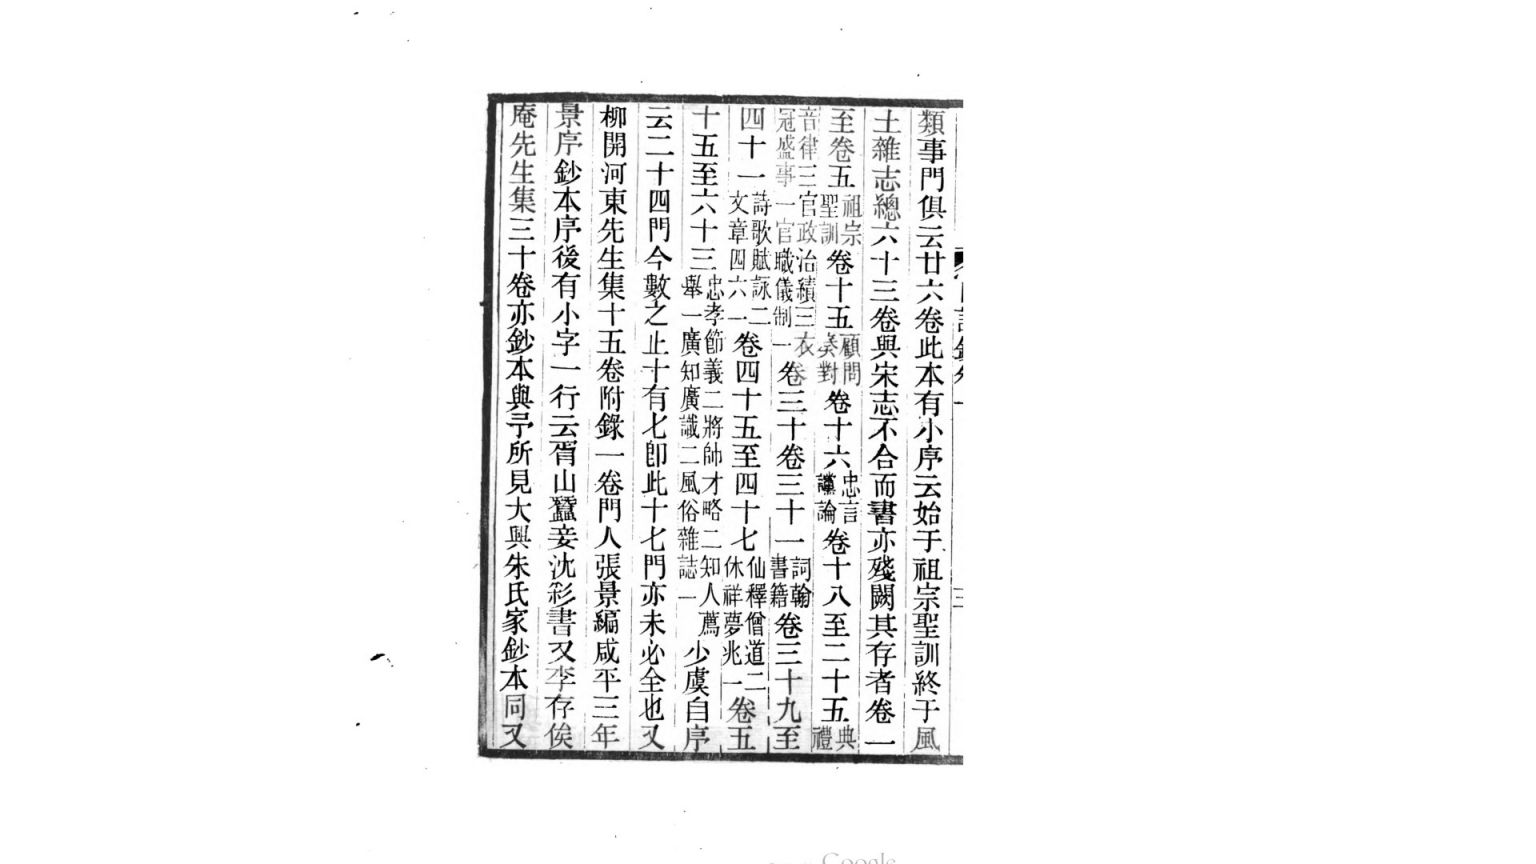 類事門俱云廿六卷此本有小序云始于祖宗聖訓終于風
土雜志總六十三卷與宋志不合而書亦殘闕其存者卷一
至卷五祖宗聖訓卷十五顧問奏對卷十六忠言讜論卷十八至二十五典禮
音律三官政治績三衣冠盛事一官職儀制一卷三十卷三十一詞翰書籍卷三十九至
四十一詩歌賦詠二文章四六一卷四十五至四十七仙釋僧道二休祥夢兆一卷五
十五至六十三忠孝節義二將帥才略二知人薦舉一廣知廣識二風俗雜誌一少虞自序
云二十四門今數之止十有七卽此十七門亦未必全也又
柳開河東先生集十五卷附錄一卷門人張景編咸平三年
景序鈔本序後有小字一行云胥山蠶妾沈彩書又李存俟
庵先生集三十卷亦鈔本與予所見大興朱氏家鈔本同又
三
Google